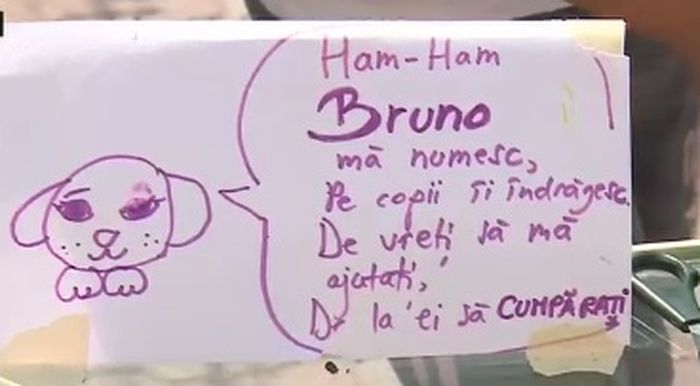 Ham-Ham
Bruno
mă numesc,
Pe copii îi îndrăgesc.
De vreți să mă
ajutați,
De la ei să CUMPĂRAȚI